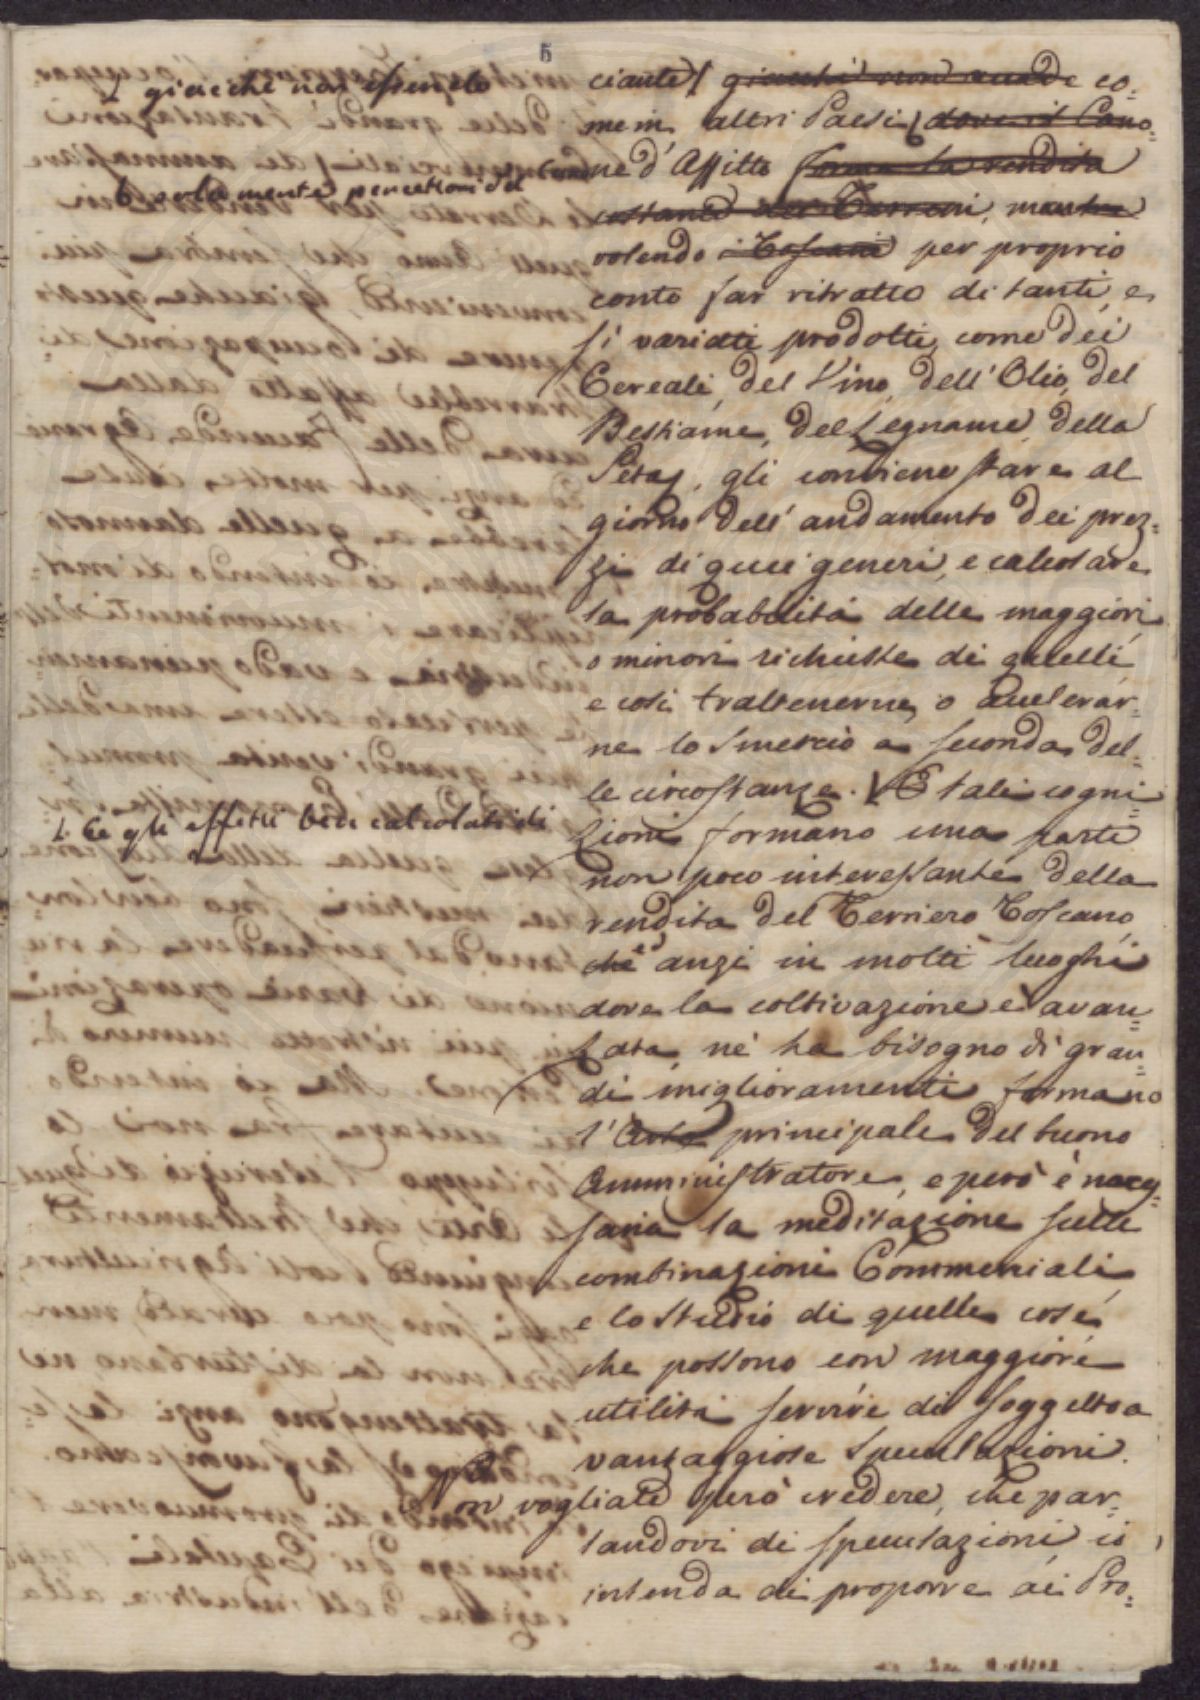 5
giacchè non essendo
solamente percettori del
Ee gli effetti ben calcolati di
ciante/ giacchè non accade co:
me in altri Paesi dove il Cano:
ne d'Affitto forma la rendita
costante dei Terreni, mentre
volendo i Toscani per proprio
conto far ritratto di tanti, e
sì variati prodotti, come dei
Cereali, del Vino, dell'Olio, del
Bestiame, del Legname, della
Seta, gli conviene stare al
giorno dell'andamento dei prez:
zi di quei generi, e calcolare
la probabilità delle maggiori
o minori richieste di quelli
e così trattenerne, o accelerar:
ne lo smercio a seconda del:
le circostanze. E tali cogni:
zioni formano una parte
non poco interessante della
rendita del Terriero Toscano,
che anzi in molti luoghi
dove la coltivazione è avan:
zata, nè ha bisogno di gran:
di miglioramenti formano
l'Arte principale del buono
Amministratore, e però è neces:
saria la meditazione sulle
combinazioni Commerciali
e lo studio di quelle cose
che possono con maggiore
utilità servire di soggetto a
vantaggiose speculazioni.
Non vogliate però credere, che par:
landovi di speculazioni io
intenda di proporre ai Pro: